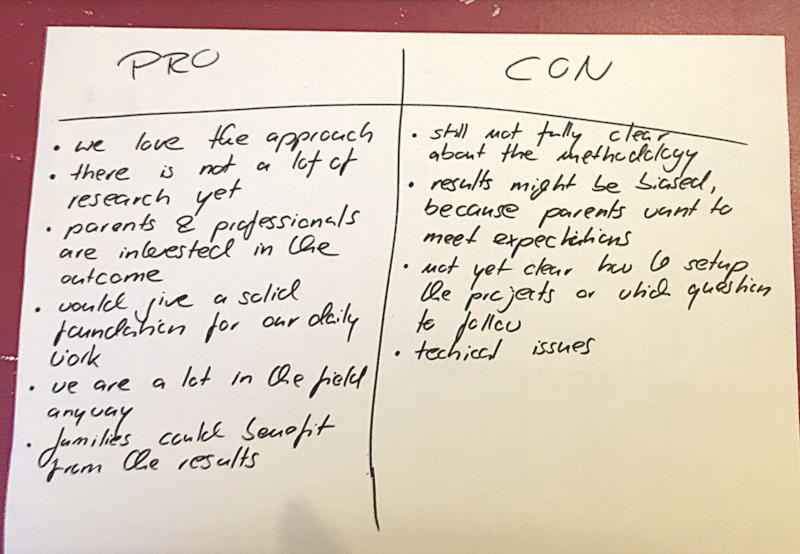 PRO
• we love the approach
• there is not a lot of
research yet
• parents & professionals
are interested in the
outcome
• would give a solid
foundation for our daily
work
• we are a lot in the field
anyway
• families could benefit
from the results
CON
• still not fully clear
about the methodology
• results might be biased,
because parents want to
meet expectations
• not yet clear how to setup
the projects or which question
to follow
• techical issues